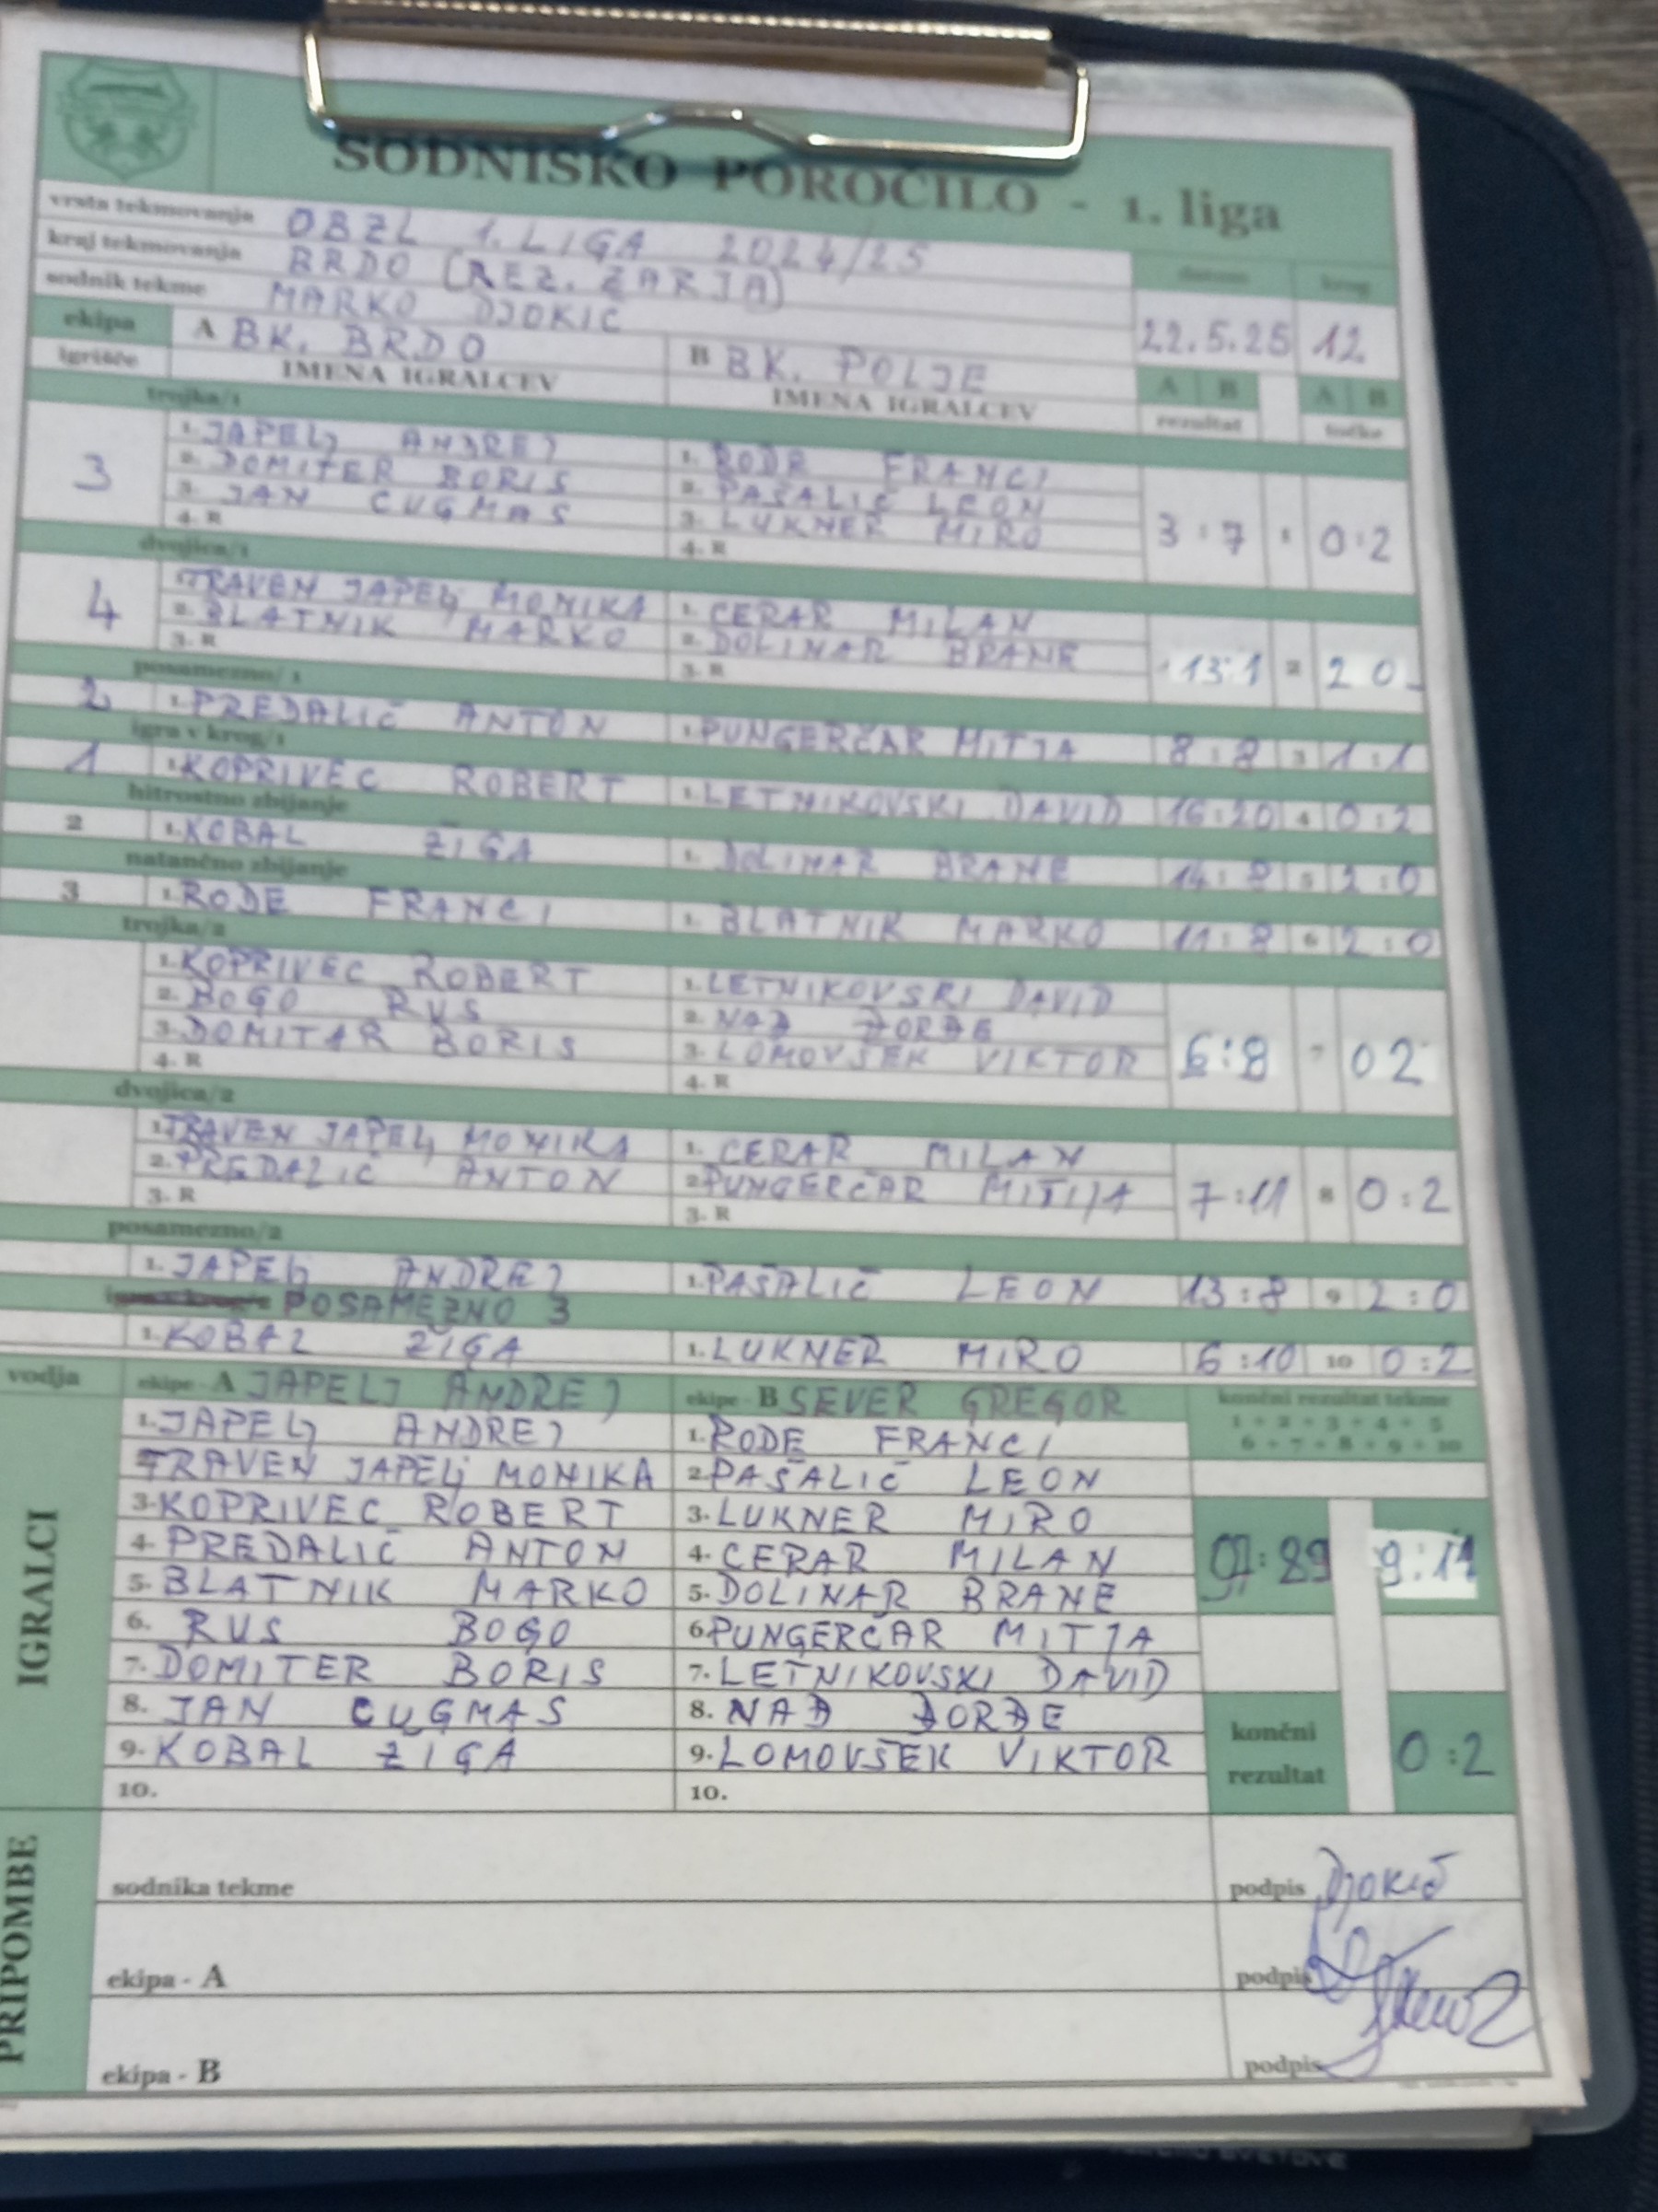 SODNIŠKO POROČILO - 1. liga
vrsta tekmovanja OBZL 1. LIGA 2024/25
kraj tekmovanja BRDO (REZ. ZARJA)
sodnik tekme MARKO DJOKIC
datum krog
22.5.25 12
ekipa A BK. BRDO B BK. POLJE
igrišče IMENA IGRALCEV IMENA IGRALCEV
A B A B
rezultat točke
trojka/1
3
1. JAPELJ ANDREJ 1. RODE FRANCI
2. DOMITER BORIS 2. PAŠALIČ LEON
3. JAN CUGMAS 3. LUKNER MIRO
4. R 4. R
3:7 1 0:2
dvojica/1
4
TRAVEN JAPELJ MONIKA 1. CERAR MILAN
2. BLATNIK MARKO 2. DOLINAR BRANE
3. R 3. R
13:1 2 2 0
posamezno/1
2 1. PREDALIČ ANTON 1. PUNGERČAR MITJA 8:8 3 1:1
igra v krog/1
1 1. KOPRIVEC ROBERT 1. LETNIKOVSKI DAVID 16:20 4 0:2
hitrostno zbijanje
2 1. KOBAL ŽIGA 1. DOLINAR BRANE 14:8 5 2:0
natančno zbijanje
3 1. RODE FRANCI 1. BLATNIK MARKO 11:8 6 2:0
trojka/2
1. KOPRIVEC ROBERT 1. LETNIKOVSKI DAVID
2. BOGO RUS 2. NAĐ ĐORĐE
3. DOMITAR BORIS 3. LOMOVŠEK VIKTOR
4. R 4. R
6:8 7 0 2
dvojica/2
1. TRAVEN JAPELJ MONIKA 1. CERAR MILAN
2. PREDALIČ ANTON 2. PUNGERČAR MITIJA
3. R 3. R
7:11 8 0:2
posamezno/2
1. JAPELJ ANDREJ 1. PAŠALIČ LEON 13:8 9 2:0
POSAMEZNO 3
1. KOBAL ŽIGA 1. LUKNER MIRO 6:10 10 0:2
vodja ekipe - A JAPELJ ANDREJ ekipe - B SEVER GREGOR
končni rezultat tekme
1 + 2 + 3 + 4 + 5
6 + 7 + 8 + 9 + 10
IGRALCI
1. JAPELJ ANDREJ 1. RODE FRANCI
TRAVEN JAPELJ MONIKA 2. PAŠALIČ LEON
3. KOPRIVEC ROBERT 3. LUKNER MIRO
4. PREDALIČ ANTON 4. CERAR MILAN
5. BLATNIK MARKO 5. DOLINAR BRANE
97:89 9:11
6. RUS BOGO 6. PUNGERČAR MITJA
7. DOMITER BORIS 7. LETNIKOVSKI DAVID
8. JAN CUGMAS 8. NAĐ ĐORĐE
9. KOBAL ŽIGA 9. LOMOVŠEK VIKTOR
10. 10.
končni rezultat 0:2
PRIPOMBE
sodnika tekme podpis Djokić
ekipa - A podpis
ekipa - B podpis